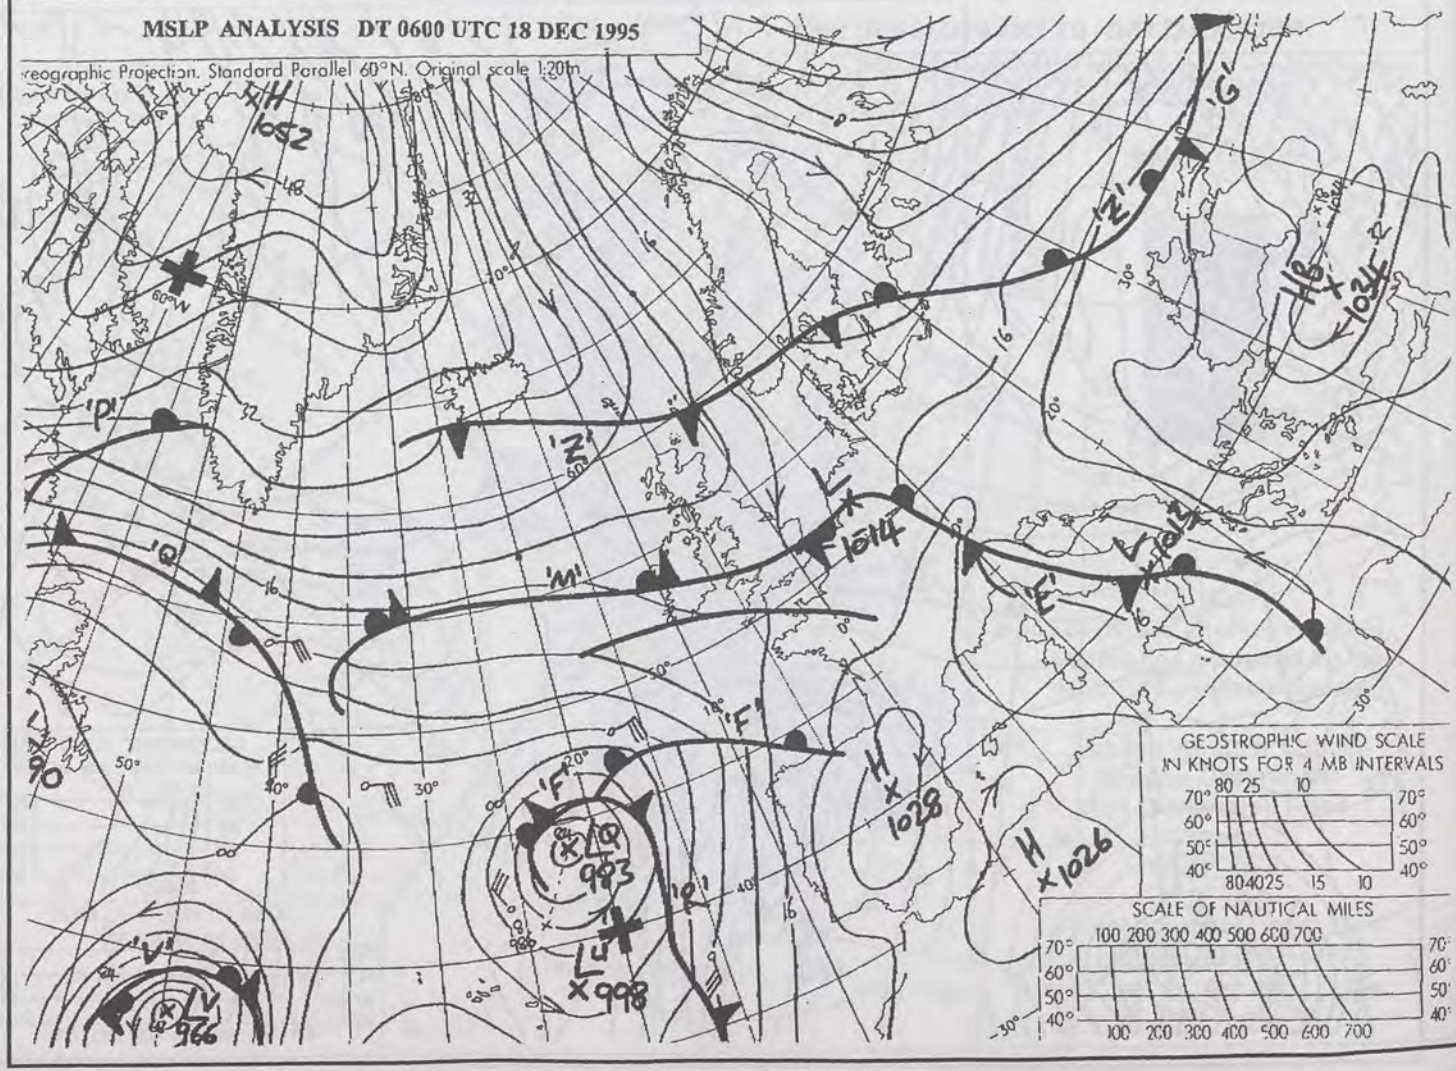 MSLP ANALYSIS DT 0600 UTC 18 DEC 1995
reographic Projection. Standard Parallel 60°N. Original scale 1:20m
80°
H
1052
48
32
16
'G'
'Z'
70°
60°N
30°
HB
1034
16
'P'
32
'Z'
60°
20°
L
1014
L
1013
'Q'
16
'M'
'E'
16
0°
50°
10°
'F'
30°
990
50°
40°
30°
20°
'F'
H
1028
LQ
983
'R'
40°
H
1026
16
986
'V'
64
L U
998
LV
966
30°
GEOSTROPHIC WIND SCALE
IN KNOTS FOR 4 MB INTERVALS
80 25 10
70° 70°
60° 60°
50° 50°
40° 40°
80 40 25 15 10
SCALE OF NAUTICAL MILES
100 200 300 400 500 600 700
70° 70°
60° 60°
50° 50°
40° 40°
100 200 300 400 500 600 700